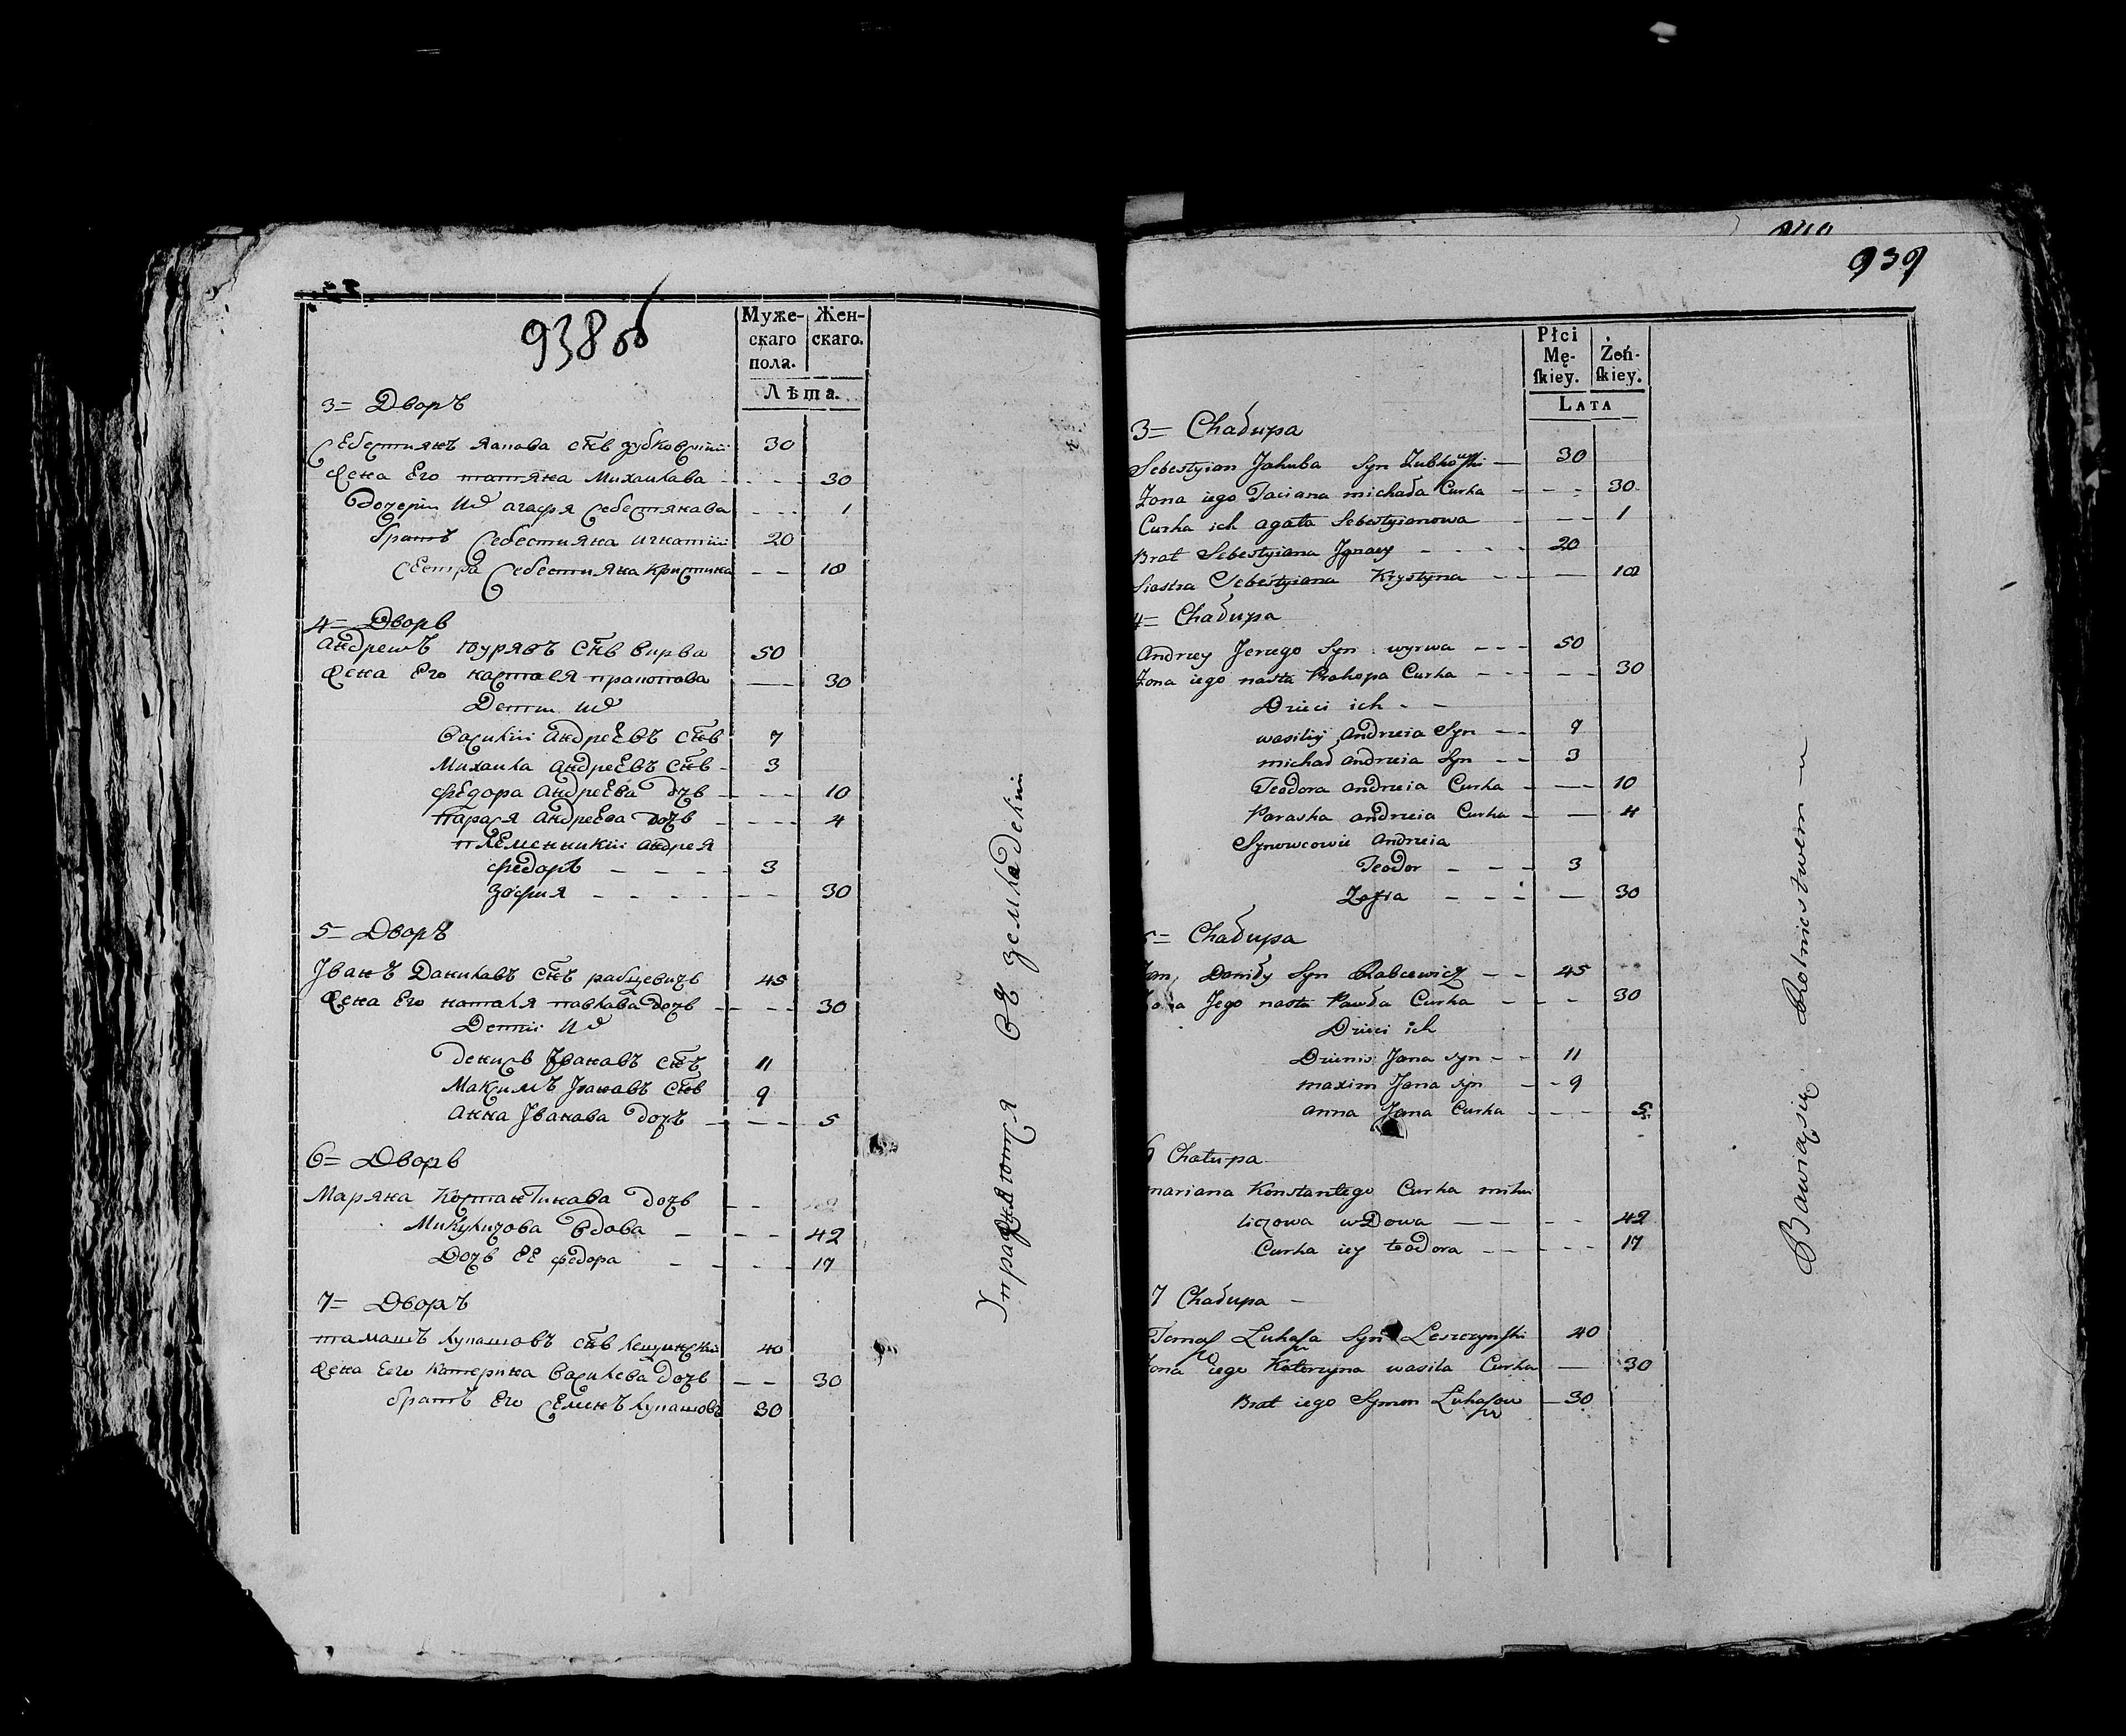 938 об
Муже-
скаго
пола.
Жен-
скаго.
Лѣта.
3= Дворъ
Себестиянъ Яапава Снъ Зубковский 30
Жена Его татяна Михаилава - - - 30
Дочери Их агафя Себестянава - - - 1
братъ Себестияна игнатий 20
Сестра Себестияна Кристина - - 18
4= Дворъ
Андреи Юрявъ Снъ вырва 50
Жена Его насталя пракопава — 30
Дети их
Василий Андреевъ Снъ 7
Михаила Андреевъ Снъ - 3
Федора Андреева дочь - - - 10
Парася Андреева дочь - - - 4
племенники Андрея
Федоръ - - - - 3
Зофия - - - - - - 30
5= Дворъ
Іванъ Данилавъ Снъ рабцевичъ 45
Жена Его наталя павлава дочь - - - 30
Дети Их
Денисъ Івановъ Снъ 11
Максимъ Івановъ Снъ 9
Анна Іванава дочь - - - 5
6= Дворъ
Маряна Костантинава дочь - -
Микуличова вдова - - - 42
Дочь ЕЕ федора - - - - 17
7= Дворъ
тамашъ лукашовъ Снъ лещинский 40
Жена Его катерина василева дочь - - 30
братъ Его Семенъ лукашовъ 30
Упражняются въ земледелии
939
Płci
Mę-
skiey.
Żeń-
skiey.
LATA
3= Chałupa
Sebestyian Jakuba Syn Zubkowski — 30
Zona iego Taciana michała Curka - - - 30
Curka ich agata Sebestyianowa - - - 1
Brat Sebestyiana Jgnacy - - - - 20
Siostra Sebestyiana Krystyna - - — 18
4= Chałupa
Andrzey Jerzego Syn wyrwa - - - 50
Zona iego nasta Prokopa Curka - - - - - 30
Dzieci ich - -
wasiliy andrzeia Syn - - 7
michał andrzeia Syn - - 3
Teodora andrzeia Curka - — - 10
Paraska andrzeia Curka - — 4
Synowcowie andrzeia
Teodor - - - 3
Zofia - - - — 30
5= Chałupa
Jan Daniły Syn Rabcewicz - - 45
Zona Jego nasta Pawła Curka - - - 30
Dzieci ich
Dzienis Jana syn - - 11
maxim Jana syn - - 9
anna Jana Curka - - - - 5
6 Chałupa
mariana Konstantego Curka miku
liczowa wdowa — — - - 42
Curka iey teodora - - - - - 17
7 Chałupa -
Tomasz Lukasza Syn Leszczynski 40
Zona iego Katerzyna wasila Curka — 30
Brat iego Symon Lukaszow — 30
Bawią się Rolnictwem